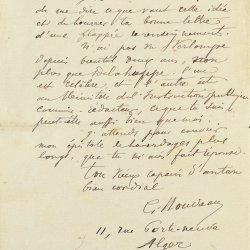 de me dire ce que vaut cette idée
et de bourrer ta bonne lettre
d'une flappée de renseignements.
N'ai pas vu
depuis bientôt deux ans, non
plus que Delahuppe. L'un
est et l'autre est
au Ministère de l'Instruction publique
commis. rédacteur, ce que tu sais
peut-être aussi bien que moi.
J'attends, pour couvrir
mon épître de bavardages plus
longs, que tu m'aies fait réponse.
Ton vieux copain d'antan
bien cordial
G.
11, rue Porte-neuve
Alger